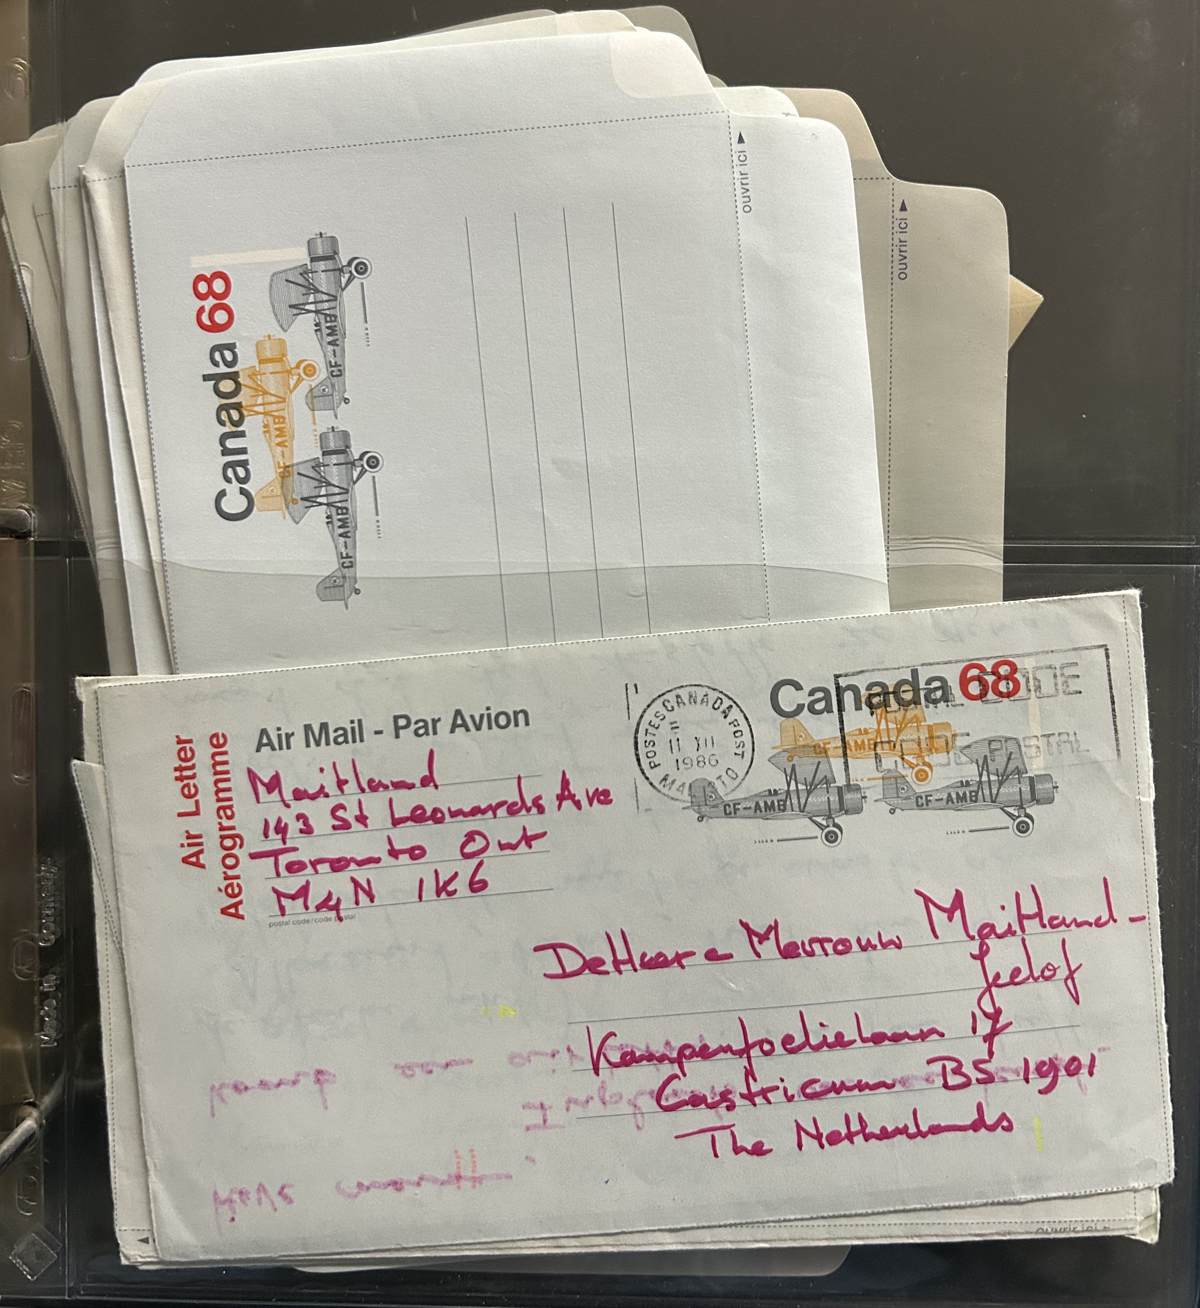 ouvrir ici
ouvrir ici
Canada 68
CF-AMB
CF-AMB
CF-AMB
Air Letter
Aérogramme
Air Mail - Par Avion
Maitland
143 St Leonards Ave
Toronto Ont
M4N 1K6
postal code/code postal
POSTES CANADA POST
11 XII
1986
Canada 68
POSTAL CODE
CODE POSTAL
CF-AMB
CF-AMB
CF-AMB
De Heer e Mevrouw Maitland-
Jelof
Kamperfoelielaan 17
Castricum BS 1901
The Netherlands
ouvrir ici
Made in Germany